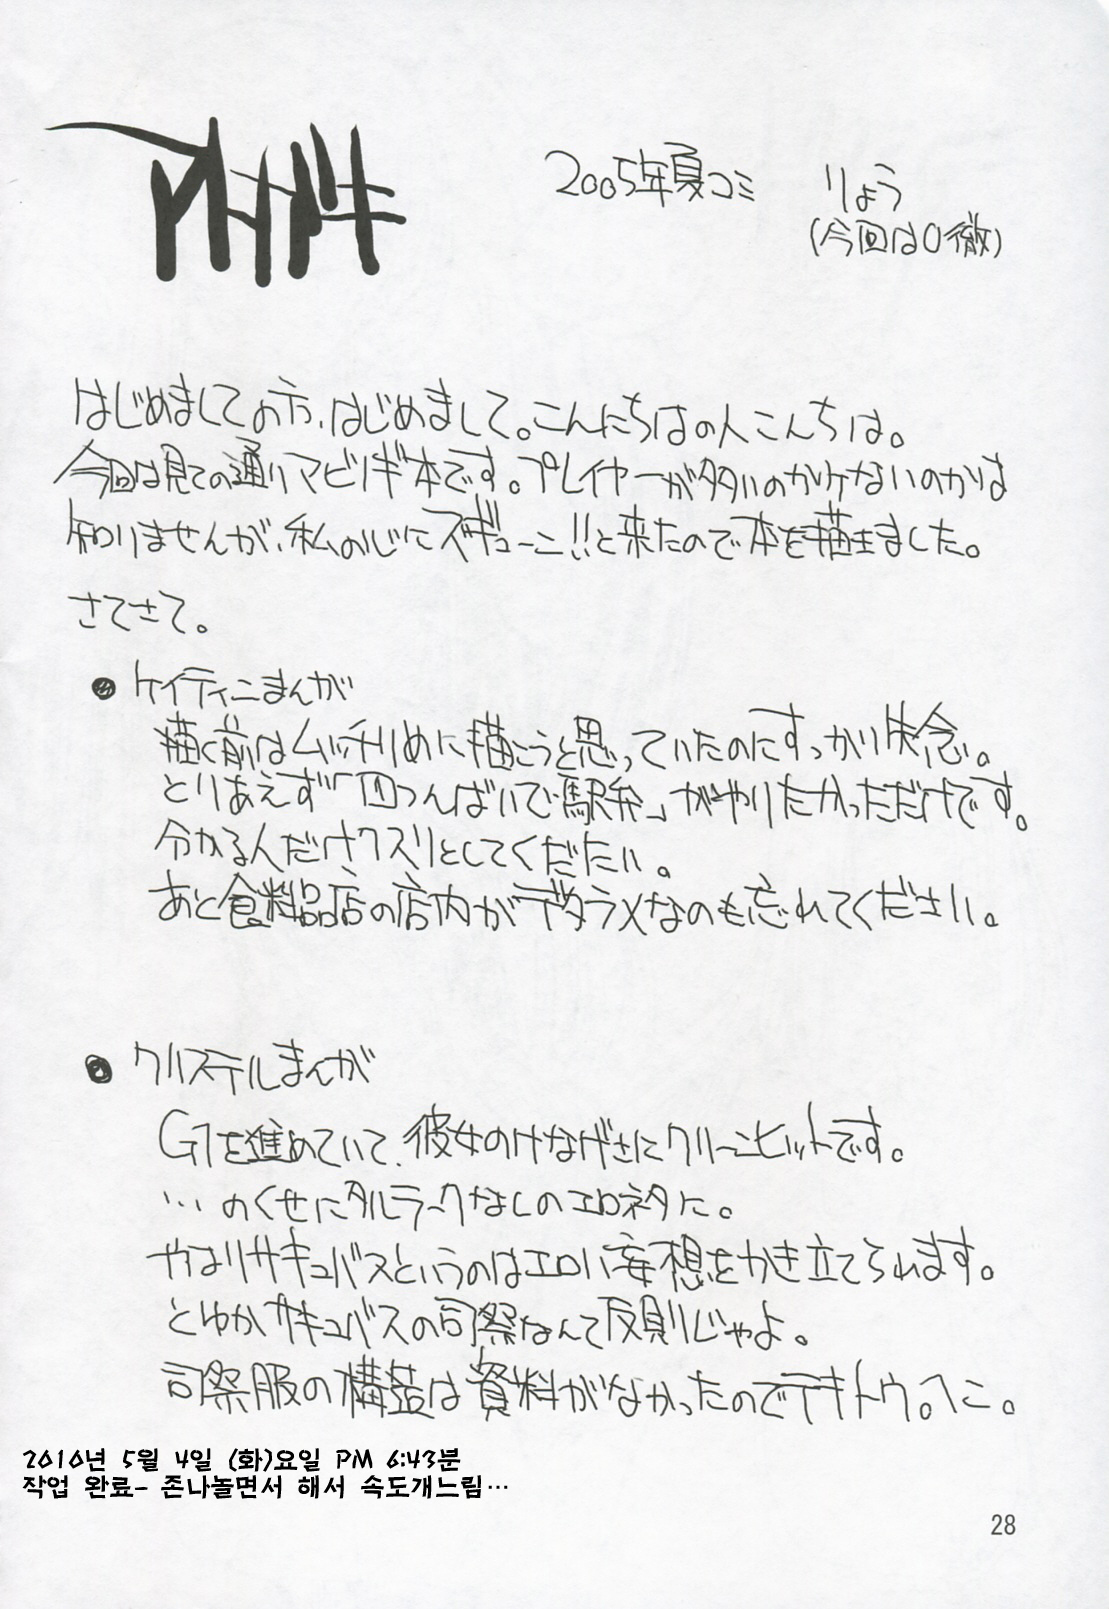 アトガキ
2005年夏コミ りょう
(今回は0徹)
はじめましての方、はじめまして。こんにちはの人こんちは。
今回は見ての通りマビノギ本です。プレイヤーが多いのかケないのかは
知りませんが、私の心にズギューン!!と来たので本を描きました。
さてさて。
● ケイティンまんが
描く前はムッチリめに描こうと思っていたのにすっかり失念。
とりあえず「四つんばいで駅弁」がやりたかっただけです。
分かる人だけクスリとしてくだたい。
あと食料品店の店内がデタラメなのも忘れてください。
● クリステルまんが
G1を進めていて、彼女のけなげさにクリーンヒットです。
…のくせにタルラークなしのエロネタに。
やはりサキュバスというのはエロい妄想をかき立てられます。
とゆかサキュバスの司祭なんて反則じゃよ。
司祭服の構造は資料がなかったのでテキトウ。へこ。
2010년 5월 4일 (화)요일 PM 6:43분
작업 완료- 존나놀면서 해서 속도개느림…
28